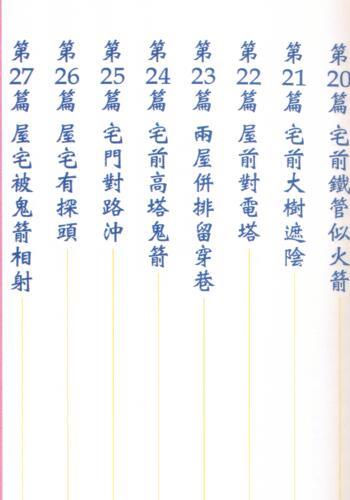 第20篇 宅前鐵管似火箭
第21篇 宅前大樹遮陰
第22篇 屋前對電塔
第23篇 兩屋併排留穿巷
第24篇 宅前高塔鬼箭
第25篇 宅門對路沖
第26篇 屋宅有探頭
第27篇 屋宅被鬼箭相射